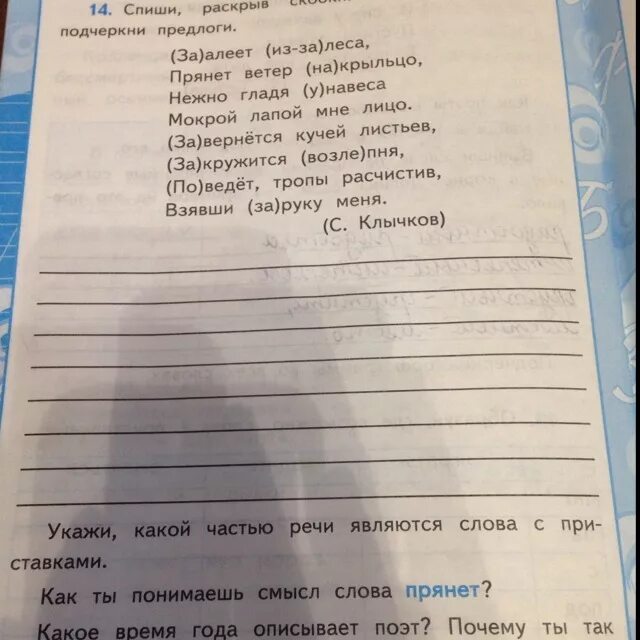 14. Спиши, раскрыв
подчеркни предлоги.
(За)алеет (из-за)леса,
Прянет ветер (на)крыльцо,
Нежно гладя (у)навеса
Мокрой лапой мне лицо.
(За)вернётся кучей листьев,
(За)кружится (возле)пня,
(По)ведёт, тропы расчистив,
Взявши (за)руку меня.
(С. Клычков)
Укажи, какой частью речи являются слова с при-
ставками.
Как ты понимаешь смысл слова прянет?
Какое время года описывает поэт? Почему ты так